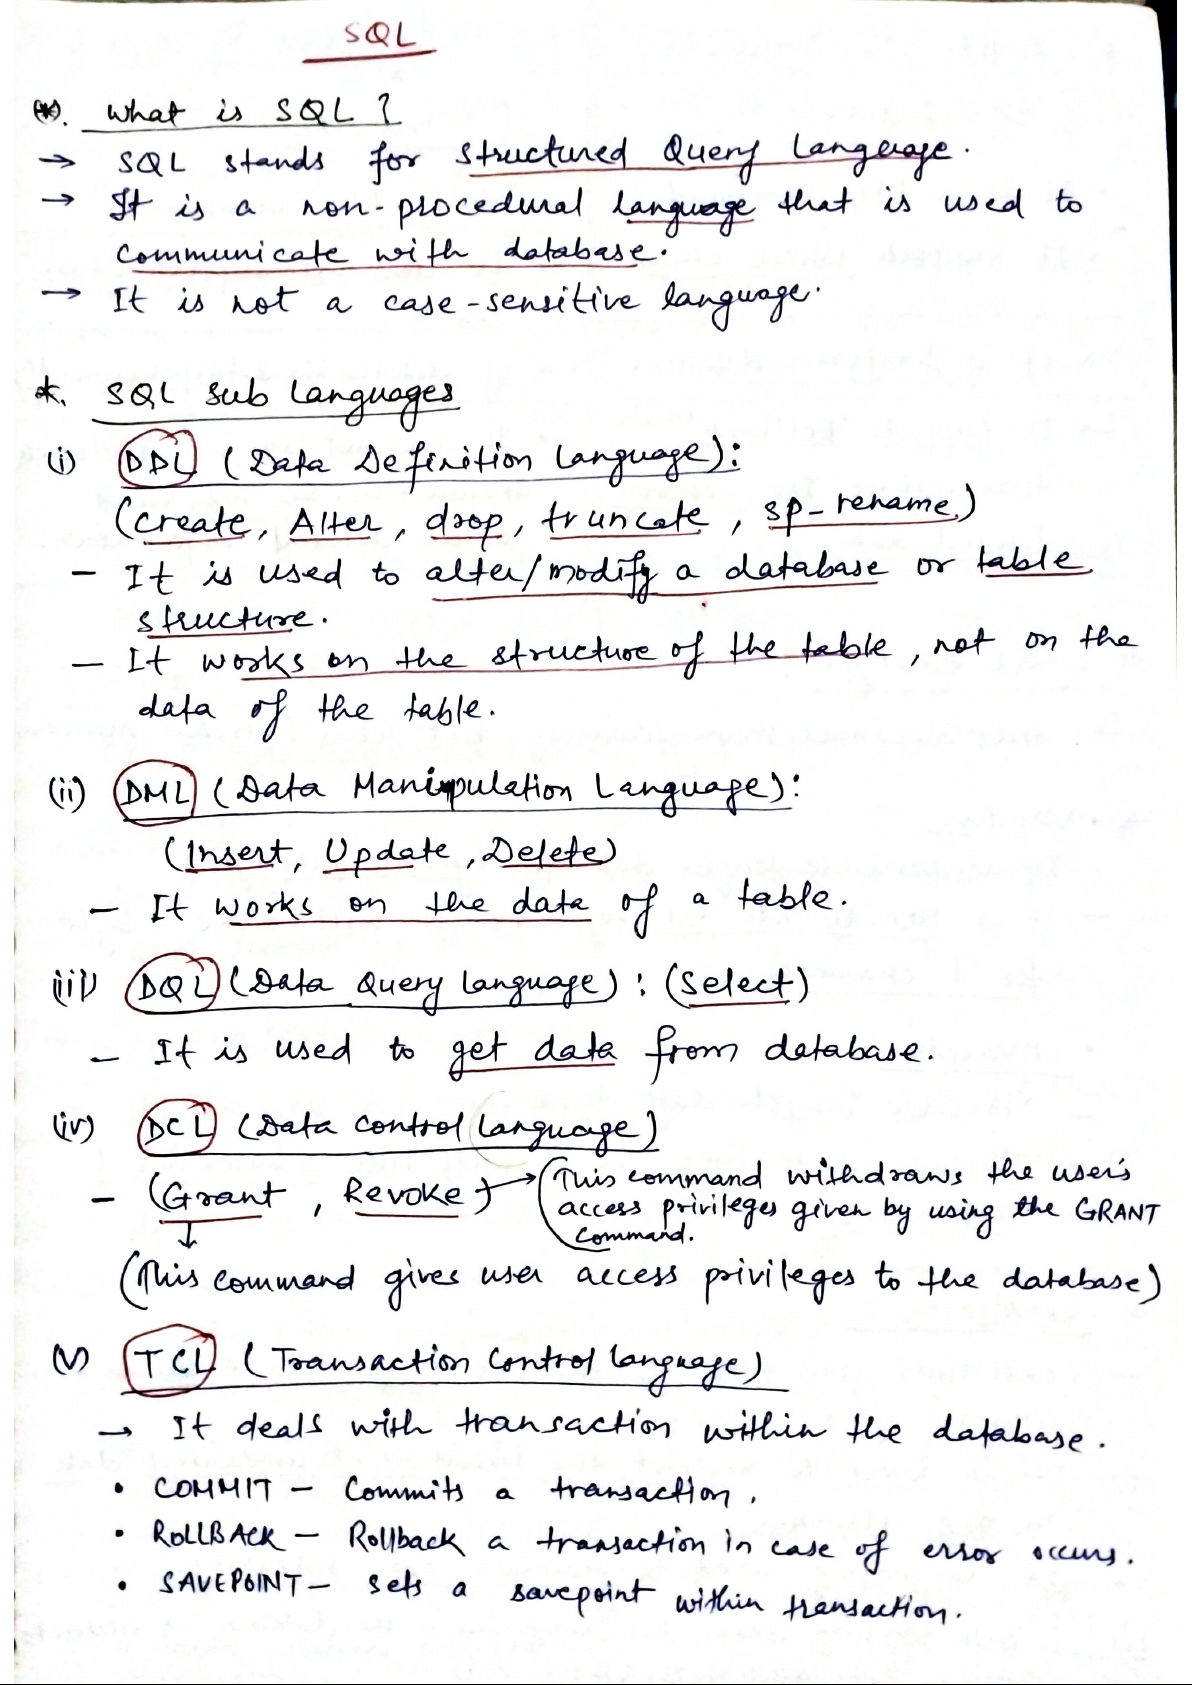 SQL
(*). What is SQL ?
→ SQL stands for Structured Query Language.
→ It is a non-procedural language that is used to
communicate with database.
→ It is not a case-sensitive language.
*. SQL Sub Languages
(i) DDL (Data Definition Language):
(Create, Alter, drop, truncate, sp-rename)
- It is used to alter/modify a database or table
structure.
- It works on the structure of the table, not on the
data of the table.
(ii) DML (Data Manipulation Language):
(Insert, Update, Delete)
- It works on the data of a table.
(iii) DQL (Data Query Language) : (Select)
- It is used to get data from database.
(iv) DCL (Data Control Language)
- (Grant, Revoke) → (This command withdraws the user's
access privileges given by using the GRANT
Command.
↓
(This command gives user access privileges to the database)
(v) TCL (Transaction Control Language)
→ It deals with transaction within the database.
• COMMIT - Commits a transaction.
• ROLLBACK - Rollback a transaction in case of error occurs.
• SAVEPOINT - Sets a savepoint within transaction.